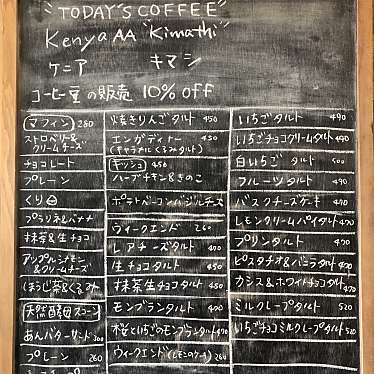 "TODAY'S COFFEE"
Kenya AA "Kimathi"
ケニア キマシ
コーヒー豆の販売 10% off
マフィン 280
ストロベリー&
クリームチーズ
チョコレート
プレーン
くり
プラリネ&バナナ
抹茶&生チョコ
アップルシナモン
&クリームチーズ
ほうじ茶&くるみ
天然酵母スコーン
あんバターサンド 300
プレーン 260
焼きりんごタルト 450
エンガディナー 450
(キャラメルくるみタルト)
キッシュ 450
ハーブチキン&きのこ
ポテトベーコンバジルチーズ
ウィークエンド 260
レアチーズタルト 470
生チョコタルト 450
抹茶生チョコタルト 450
モンブランタルト 490
桜といちごのモンブランタルト 490
ウィークエンド(レモンのケーキ) 260
いちごタルト 490
いちごチョコクリームタルト 490
白いちごタルト 500
フルーツタルト 490
バスクチーズケーキ 490
レモンクリームパイタルト 490
プリンタルト 490
ピスタチオ&バニラタルト 490
カシス&ホワイトチョコタルト 490
ミルクレープタルト 520
いちごチョコミルクレープタルト 520